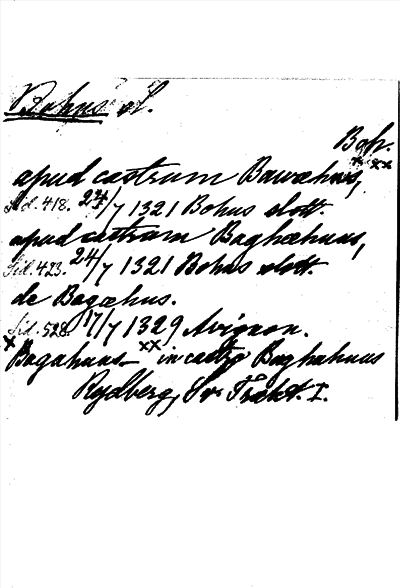 Bohus sl.
Boh.
× ××
apud castrum Bawæhws,
Sid. 418. 24/7 1321 Bohus slott.
apud castrum Baghæhuus,
Sid. 423. 24/7 1321 Bohus slott.
de Bagæhus.
Sid. 528. 17/7 1329 Avignon.
× Bagahuus ×× in castro Baghahuus
Rydberg, Sv. Trakt. I.